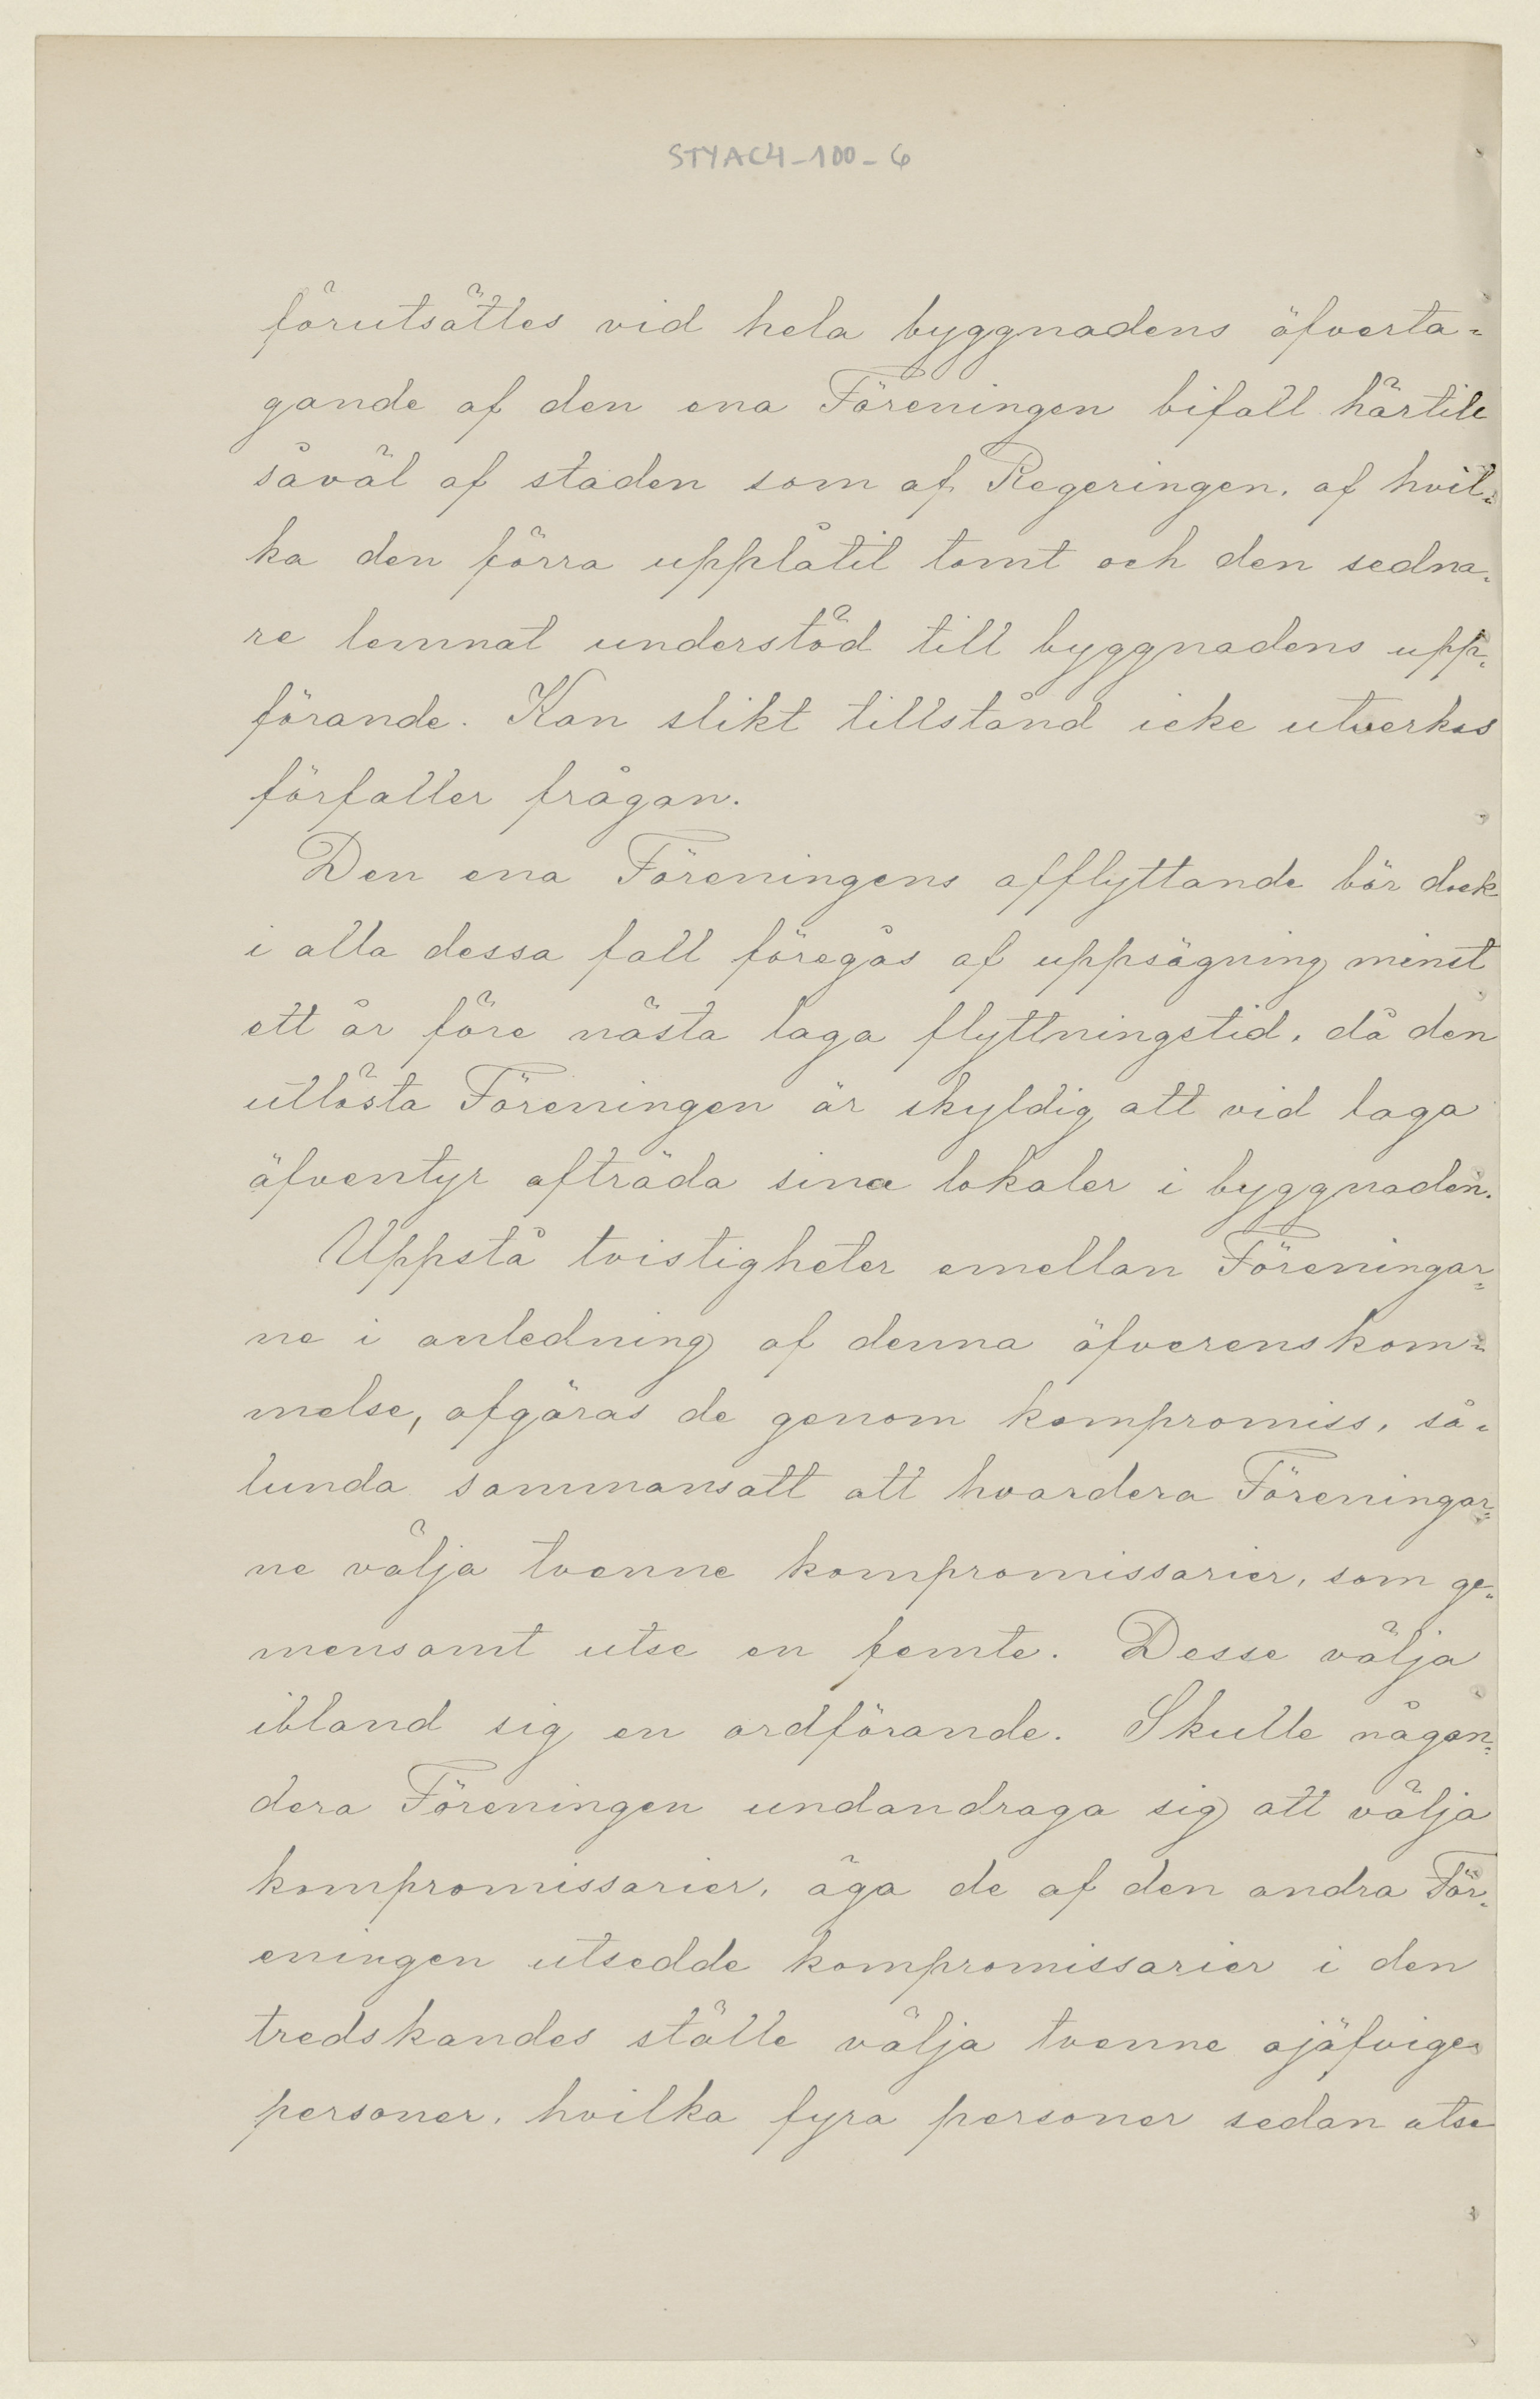 STYAC4-100-6
förutsättes vid hela byggnadens öfverta-
gande af den ena Föreningen bifall härtill
såväl af staden som af Regeringen, af hvil-
ka den förra upplåtit tomt och den sedna-
re lemnat understöd till byggnadens upp-
förande. Kan slikt tillstånd icke utverkas
förfaller frågan.
Den ena Föreningens afflyttande bör dock
i alla dessa fall föregås af uppsägning minst
ett år före nästa laga flyttningstid, då den
utlösta Föreningen är skyldig att vid laga
äfventyr afträda sina lokaler i byggnaden.
Uppstå tvistigheter emellan Föreningar-
ne i anledning af denna öfverenskom-
melse, afgöras de genom kompromiss, så-
lunda sammansatt att hvardera Föreningar-
ne välja tvenne kompromissarier, som ge-
mensamt utse en femte. Desse välja
ibland sig en ordförande. Skulle någon-
dera Föreningen undandraga sig att välja
kompromissarier, äga de af den andra För-
eningen utsedde kompromissarier i den
tredskandes ställe välja tvenne ojäfvige
personer, hvilka fyra personer sedan utse